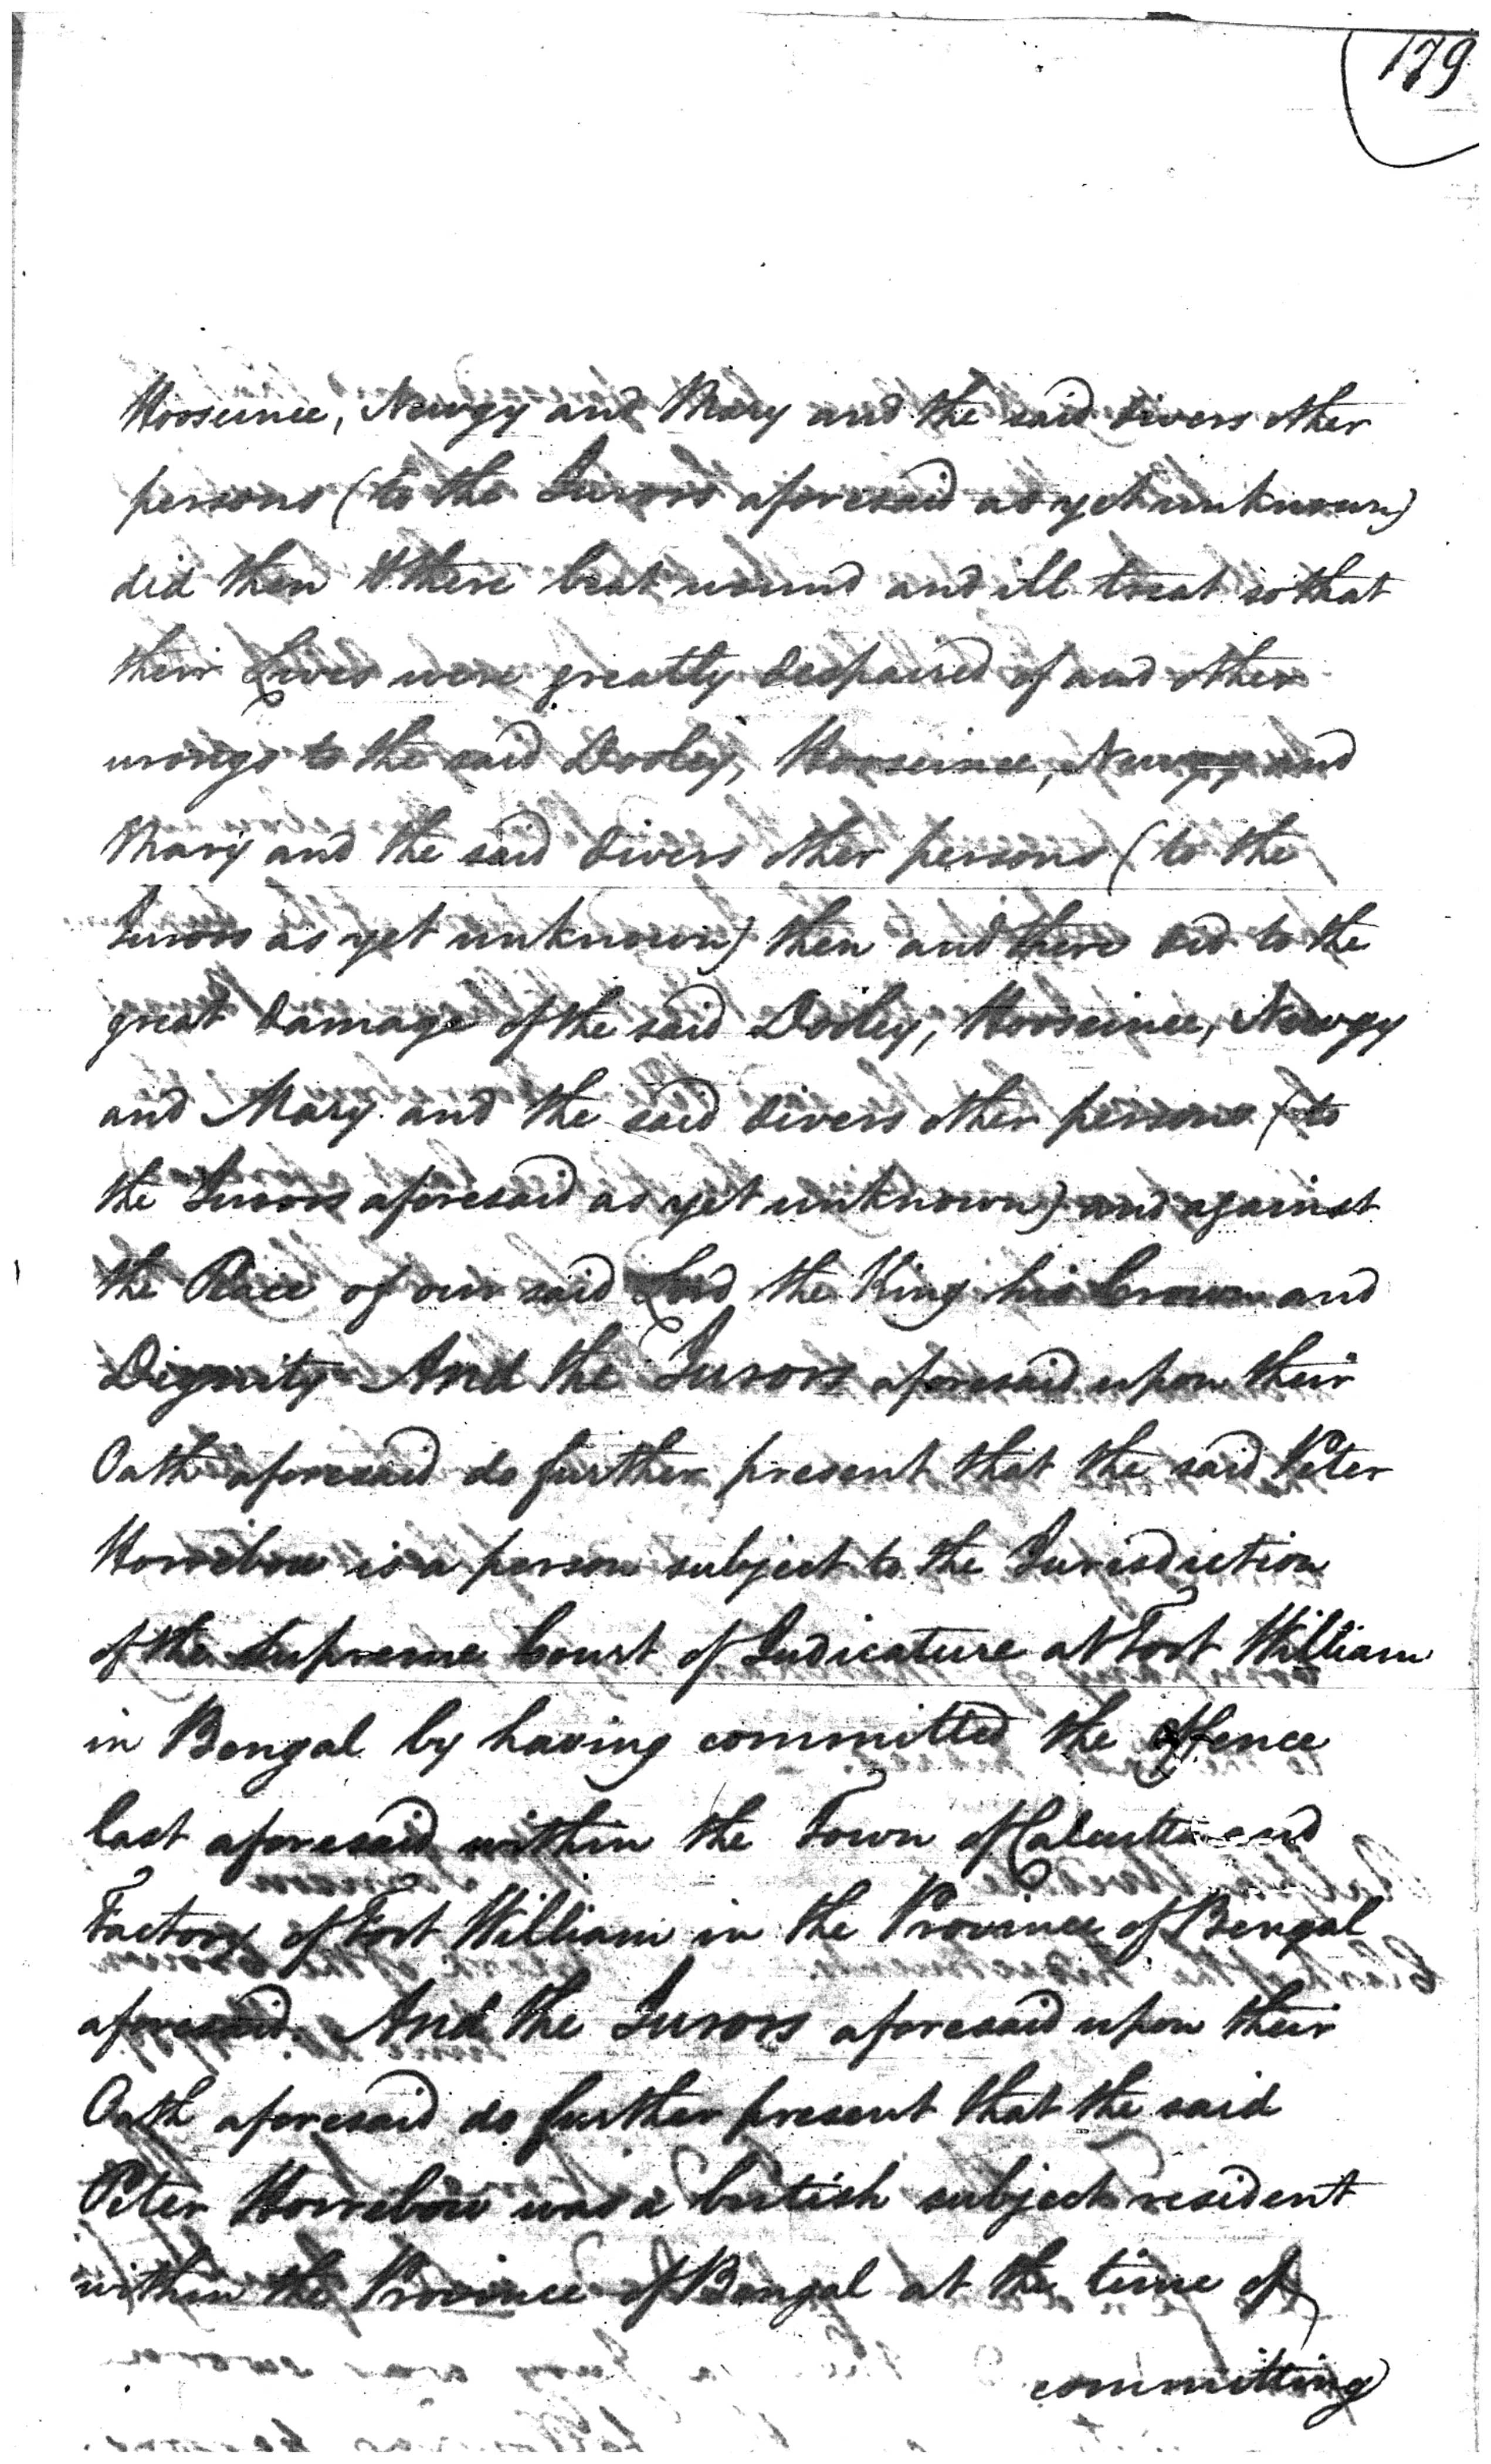 179
Hooseinee, Newgy and Mary and the said divers other
persons (to the Jurors aforesaid as yet unknown)
did then & there beat wound and ill treat so that
their Lives were greatly despaired of and other
wrongs to the said Dooley, Hooseinee, Newgy and
Mary and the said divers other persons (to the
Jurors as yet unknown) then and there did to the
great damage of the said Dooley, Hooseinee, Newgy
and Mary and the said divers other persons (to
the Jurors aforesaid as yet unknown) and against
the Peace of our said Lord the King his Crown and
Dignity And the Jurors aforesaid upon their
Oath aforesaid do further present that the said Peter
Horrebow is a person subject to the Jurisdiction
of the Supreme Court of Judicature at Fort William
in Bengal by having committed the offence
last aforesaid within the Town of Calcutta and
Factory of Fort William in the Province of Bengal
aforesaid. And the Jurors aforesaid upon their
Oath aforesaid do further present that the said
Peter Horrebow was a british subject resident
within the Province of Bengal at the time of
committing